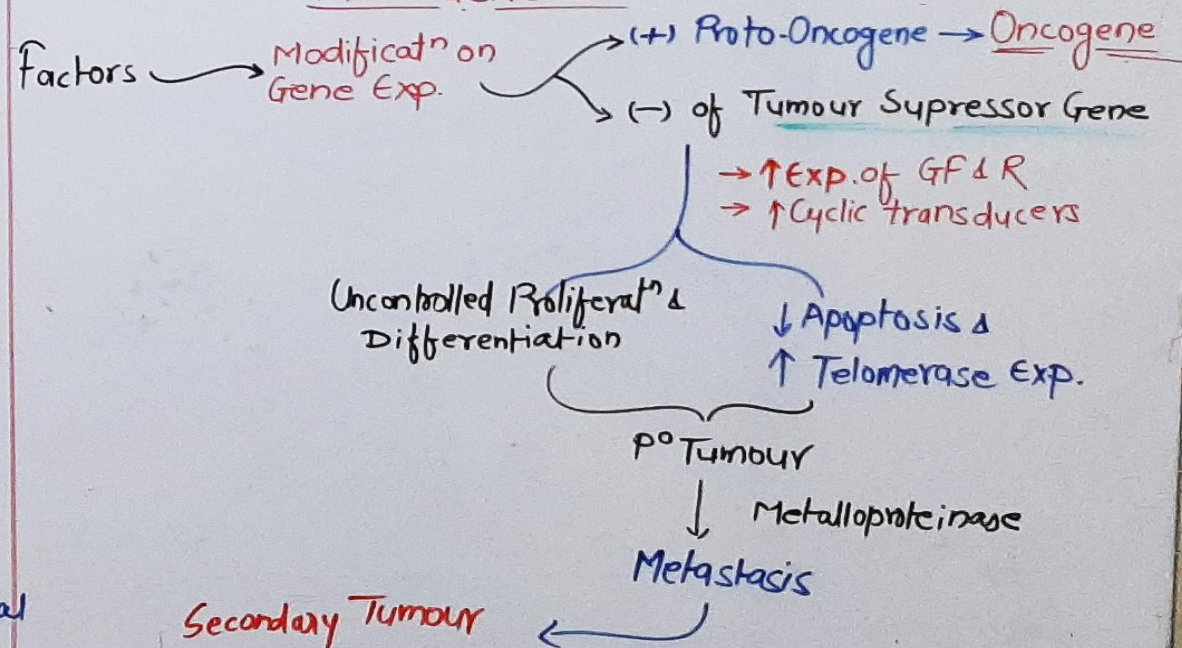 (+) Proto-Oncogene → Oncogene
Factors → Modificatⁿ on
Gene Exp.
(-) of Tumour Supressor Gene
→ ↑Exp. of GF & R
→ ↑Cyclic transducers
Uncontrolled Proliferatⁿ &
Differentiation
↓ Apoptosis &
↑ Telomerase Exp.
P° Tumour
↓ Metalloproteinase
Metastasis
Secondary Tumour